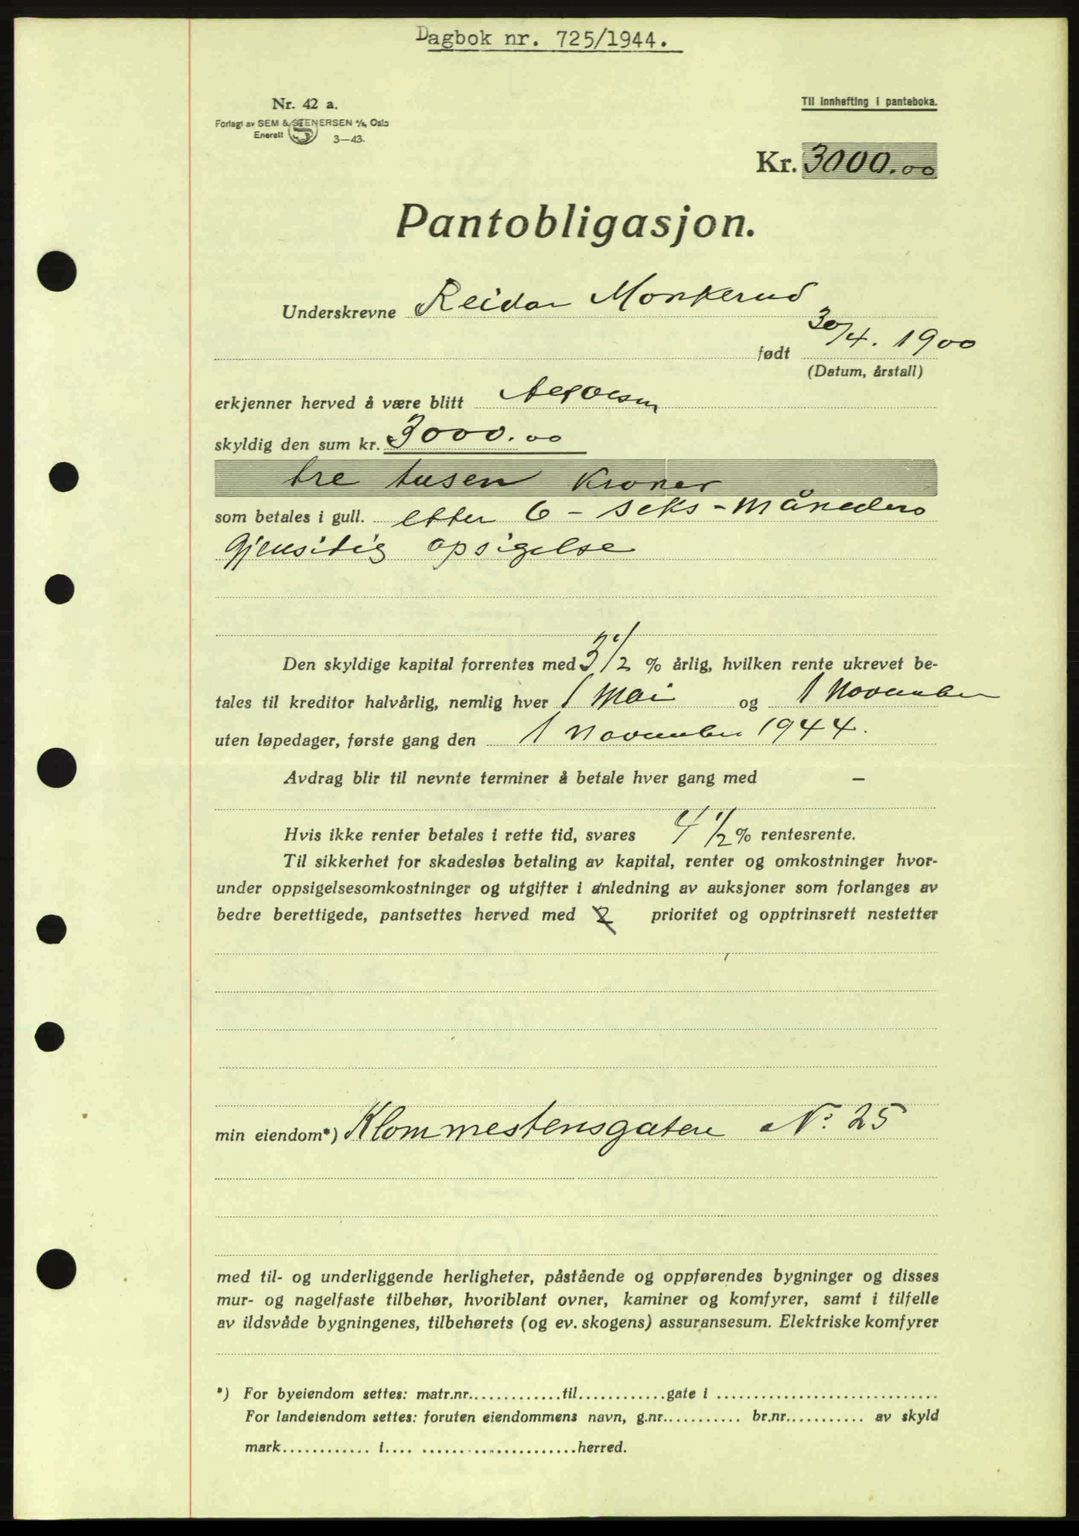 Dagbok nr. 725/1944.
Nr. 42 a.
Til innhefting i panteboka.
Forlagt av SEM & STENERSEN A/S, Oslo
Enerett S 3—43.
Kr. 3000.00
Pantobligasjon.
Underskrevne Reidar Monkerud
født 30/4. 1900
(Datum, årstall)
erkjenner herved å være blitt
skyldig den sum kr. 3000.00
tre tusen kroner
som betales i gull. etter 6 - seks - måneders
gjensidig opsigelse
Den skyldige kapital forrentes med 3 1/2 % årlig, hvilken rente ukrevet be-
tales til kreditor halvårlig, nemlig hver 1 Mai og 1 November
uten løpedager, første gang den 1 November 1944.
Avdrag blir til nevnte terminer å betale hver gang med —
Hvis ikke renter betales i rette tid, svares 4 1/2 % rentesrente.
Til sikkerhet for skadesløs betaling av kapital, renter og omkostninger hvor-
under oppsigelsesomkostninger og utgifter i anledning av auksjoner som forlanges av
bedre berettigede, pantsettes herved med 2 prioritet og opptrinsrett nestetter
min eiendom*) Klommestensgaten No 25
med til- og underliggende herligheter, påstående og oppførendes bygninger og disses
mur- og nagelfaste tilbehør, hvoriblant ovner, kaminer og komfyrer, samt i tilfelle
av ildsvåde bygningenes, tilbehørets (og ev. skogens) assuransesum. Elektriske komfyrer
*) For byeiendom settes: matr.nr.............til............gate i ..............................
For landeiendom settes: foruten eiendommens navn, g.nr........... br.nr........... av skyld
mark............ i.... ......................herred.